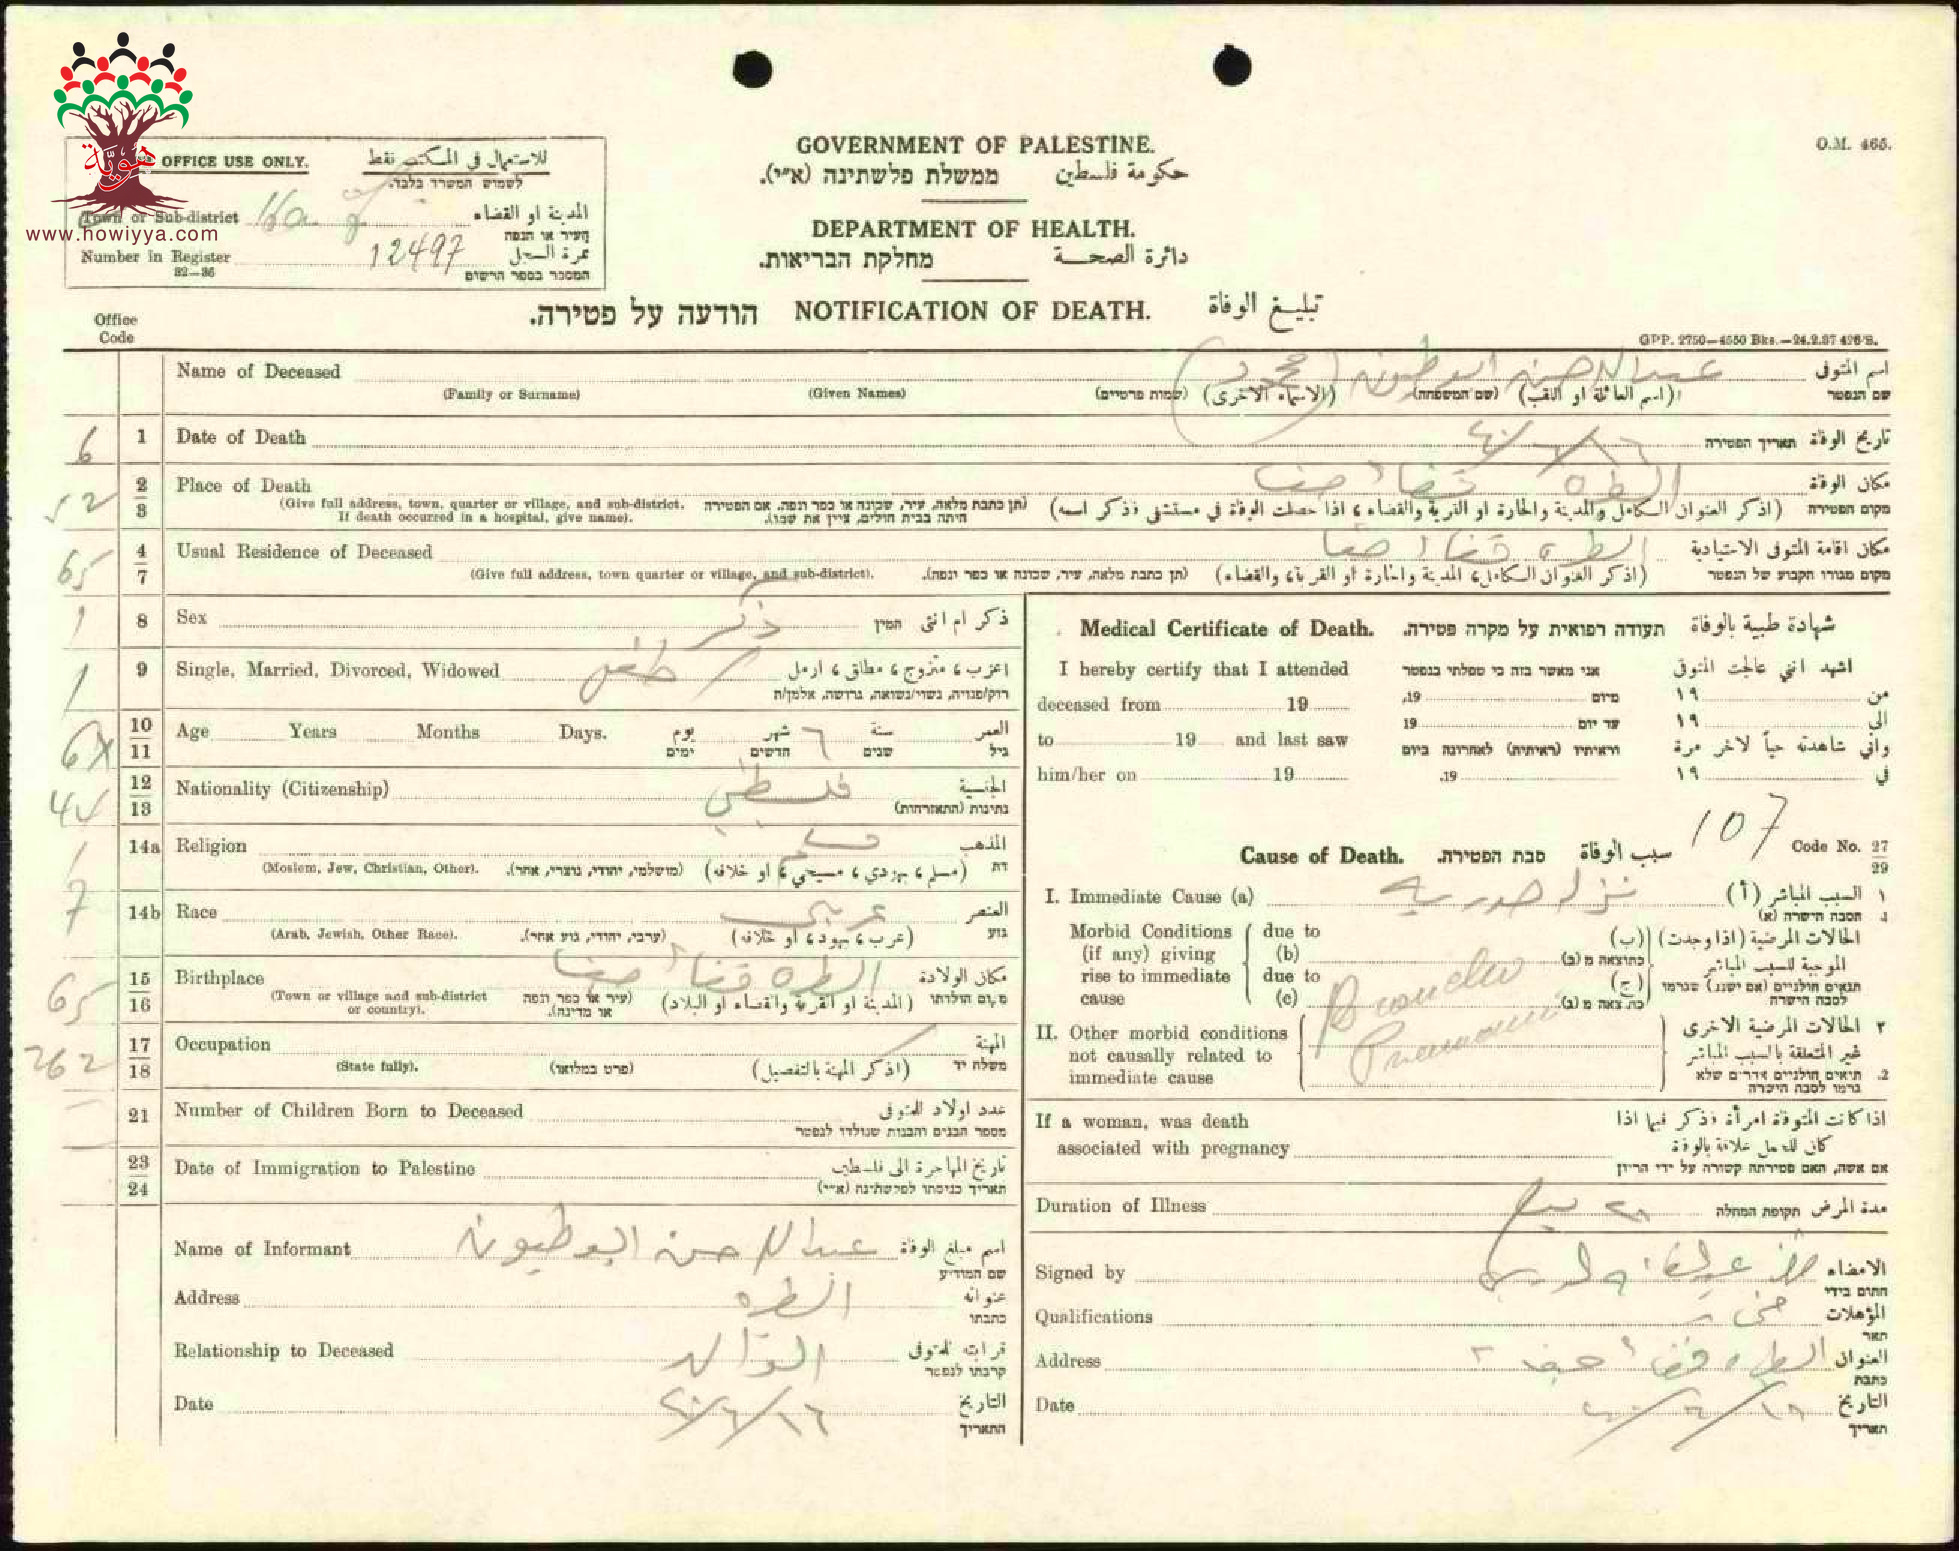 هويّة
www.howiyya.com
OFFICE USE ONLY. للاستعمال فى المكتب فقط
לשמוש המשרד בלבד.
Town or Sub-district المدينة او القضاء
העיר או הנפה
Number in Register 12497 نمرة السجل
32—36 המספר בספר הרשום
GOVERNMENT OF PALESTINE.
ממשלת פלשתינה (א״י). حكومة فلسطين
DEPARTMENT OF HEALTH.
מחלקת הבריאות. دائرة الصحة
O.M. 465.
הודעה על פטירה. NOTIFICATION OF DEATH. تبليغ الوفاة
Office
Code
GPP. 2750—4550 Bks.—24.2.37 426/S.
Name of Deceased عبدالرحمن ابو طبيونه (محمود) اسم المتوفى
(Family or Surname) (Given Names) (שמות פרטיים) (الاسماء الاخرى) (שם המשפחה) (اسم العائلة او اللقب) שם הנפטר
6 1 Date of Death תאריך הפטירה تاريخ الوفاة
52 2 Place of Death الطره قضاء حيفا مكان الوفاة
3 (Give full address, town, quarter or village, and sub-district. (תן כתבת מלאה, עיר, שכונה או כפר ונפה. אם הפטירה (اذكر العنوان الكامل والمدينة والحارة او القرية والقضاء، اذا حصلت الوفاة في مستشفى فذكر اسمه) מקום הפטירה
If death occurred in a hospital, give name). היתה בבית חולים, ציין את שמו).
65 4 Usual Residence of Deceased الطره قضاء حيفا مكان اقامة المتوفى الاعتيادية
7 (Give full address, town quarter or village, and sub-district). (תן כתבת מלאה, עיר, שכונה או כפר ונפה). (اذكر العنوان الكامل، المدينة والحارة او القرية، والقضاء) מקום מגוריו הקבוע של הנפטר
1 8 Sex ذكر המין ذكر ام انثى
1 9 Single, Married, Divorced, Widowed طفل اعزب، متزوج، مطلق، ارمل
רווק/פנויה, נשוי/נשואה, גרושה, אלמן/ה
10 Age Years Months Days. يوم شهر 6 سنة العمر
11 ימים חדשים שנים גיל
44 12 Nationality (Citizenship) فلسطيني الجنسية
13 נתינות (התאזרחות)
1 14a Religion مسلم المذهب
(Moslem, Jew, Christian, Other). (מושלמי, יהודי, נוצרי, אחר). (مسلم، يهودي، مسيحي، او خلافه) דת
7 14b Race عربي العنصر
(Arab, Jewish, Other Race). (ערבי, יהודי, גזע אחר). (عرب، يهود، او خلافه) גזע
65 15 Birthplace الطره قضاء حيفا مكان الولادة
16 (Town or village and sub-district (עיר או כפר ונפה (المدينة او القرية والقضاء او البلاد) מקום הולדתו
or country). או מדינה).
262 17 Occupation المهنة
18 (State fully). (פרט במלואו) (اذكر المهنة بالتفصيل) משלח יד
21 Number of Children Born to Deceased عدد اولاد المتوفى
מספר הבנים והבנות שנולדו לנפטר
23 Date of Immigration to Palestine تاريخ المهاجرة الى فلسطين
24 תאריך כניסתו לפלשתינה (א״י)
Name of Informant عبدالرحمن ابو طبيونه اسم مبلغ الوفاة
שם המודיע
Address الطره عنوانه
כתבתו
Relationship to Deceased الوالد قرابته للمتوفى
קרבתו לנפטר
Date التاريخ
התאריך
Medical Certificate of Death. תעודה רפואית על מקרה פטירה. شهادة طبية بالوفاة
I hereby certify that I attended אני מאשר בזה כי טפלתי בנפטר اشهد انني عالجت المتوفى
deceased from 19 מיום 19, من ١٩
to 19 and last saw עד יום 19 الى ١٩
וראיתיו (ראיתיה) לאחרונה ביום واني شاهدته حياً لاخر مرة
him/her on 19 19. في ١٩
107 Code No. 27
29
Cause of Death. סבת הפטירה. سبب الوفاة
I. Immediate Cause (a) نزله صدريه السبب المباشر (أ) ١
הסבה הישרה (א) 1.
Morbid Conditions due to الحالات المرضية (اذا وجدت) (ب)
(if any) giving (b) כתוצאה מ (ב) الموجبة للسبب المباشر
rise to immediate due to תנאים חולניים (אם ישנם) שגרמו (ج)
cause (c) כתוצאה מ (ג) לסבה הישרה
Broncho
Pneumonia
II. Other morbid conditions الحالات المرضية الاخرى ٢
not causally related to غير المتعلقة بالسبب المباشر
immediate cause תנאים חולניים אחרים שלא 2.
גרמו לסבה הישרה
If a woman, was death اذا كانت المتوفاة امرأة فذكر فيما اذا
associated with pregnancy كان للحمل علاقة بالوفاة
אם אשה, האם פטירתה קשורה על ידי הריון
Duration of Illness תקופת המחלה مدة المرض
Signed by الامضاء
חתום בידי
Qualifications المؤهلات
תאר
Address الطره قضاء حيفا العنوان
כתבת
Date التاريخ
תאריך